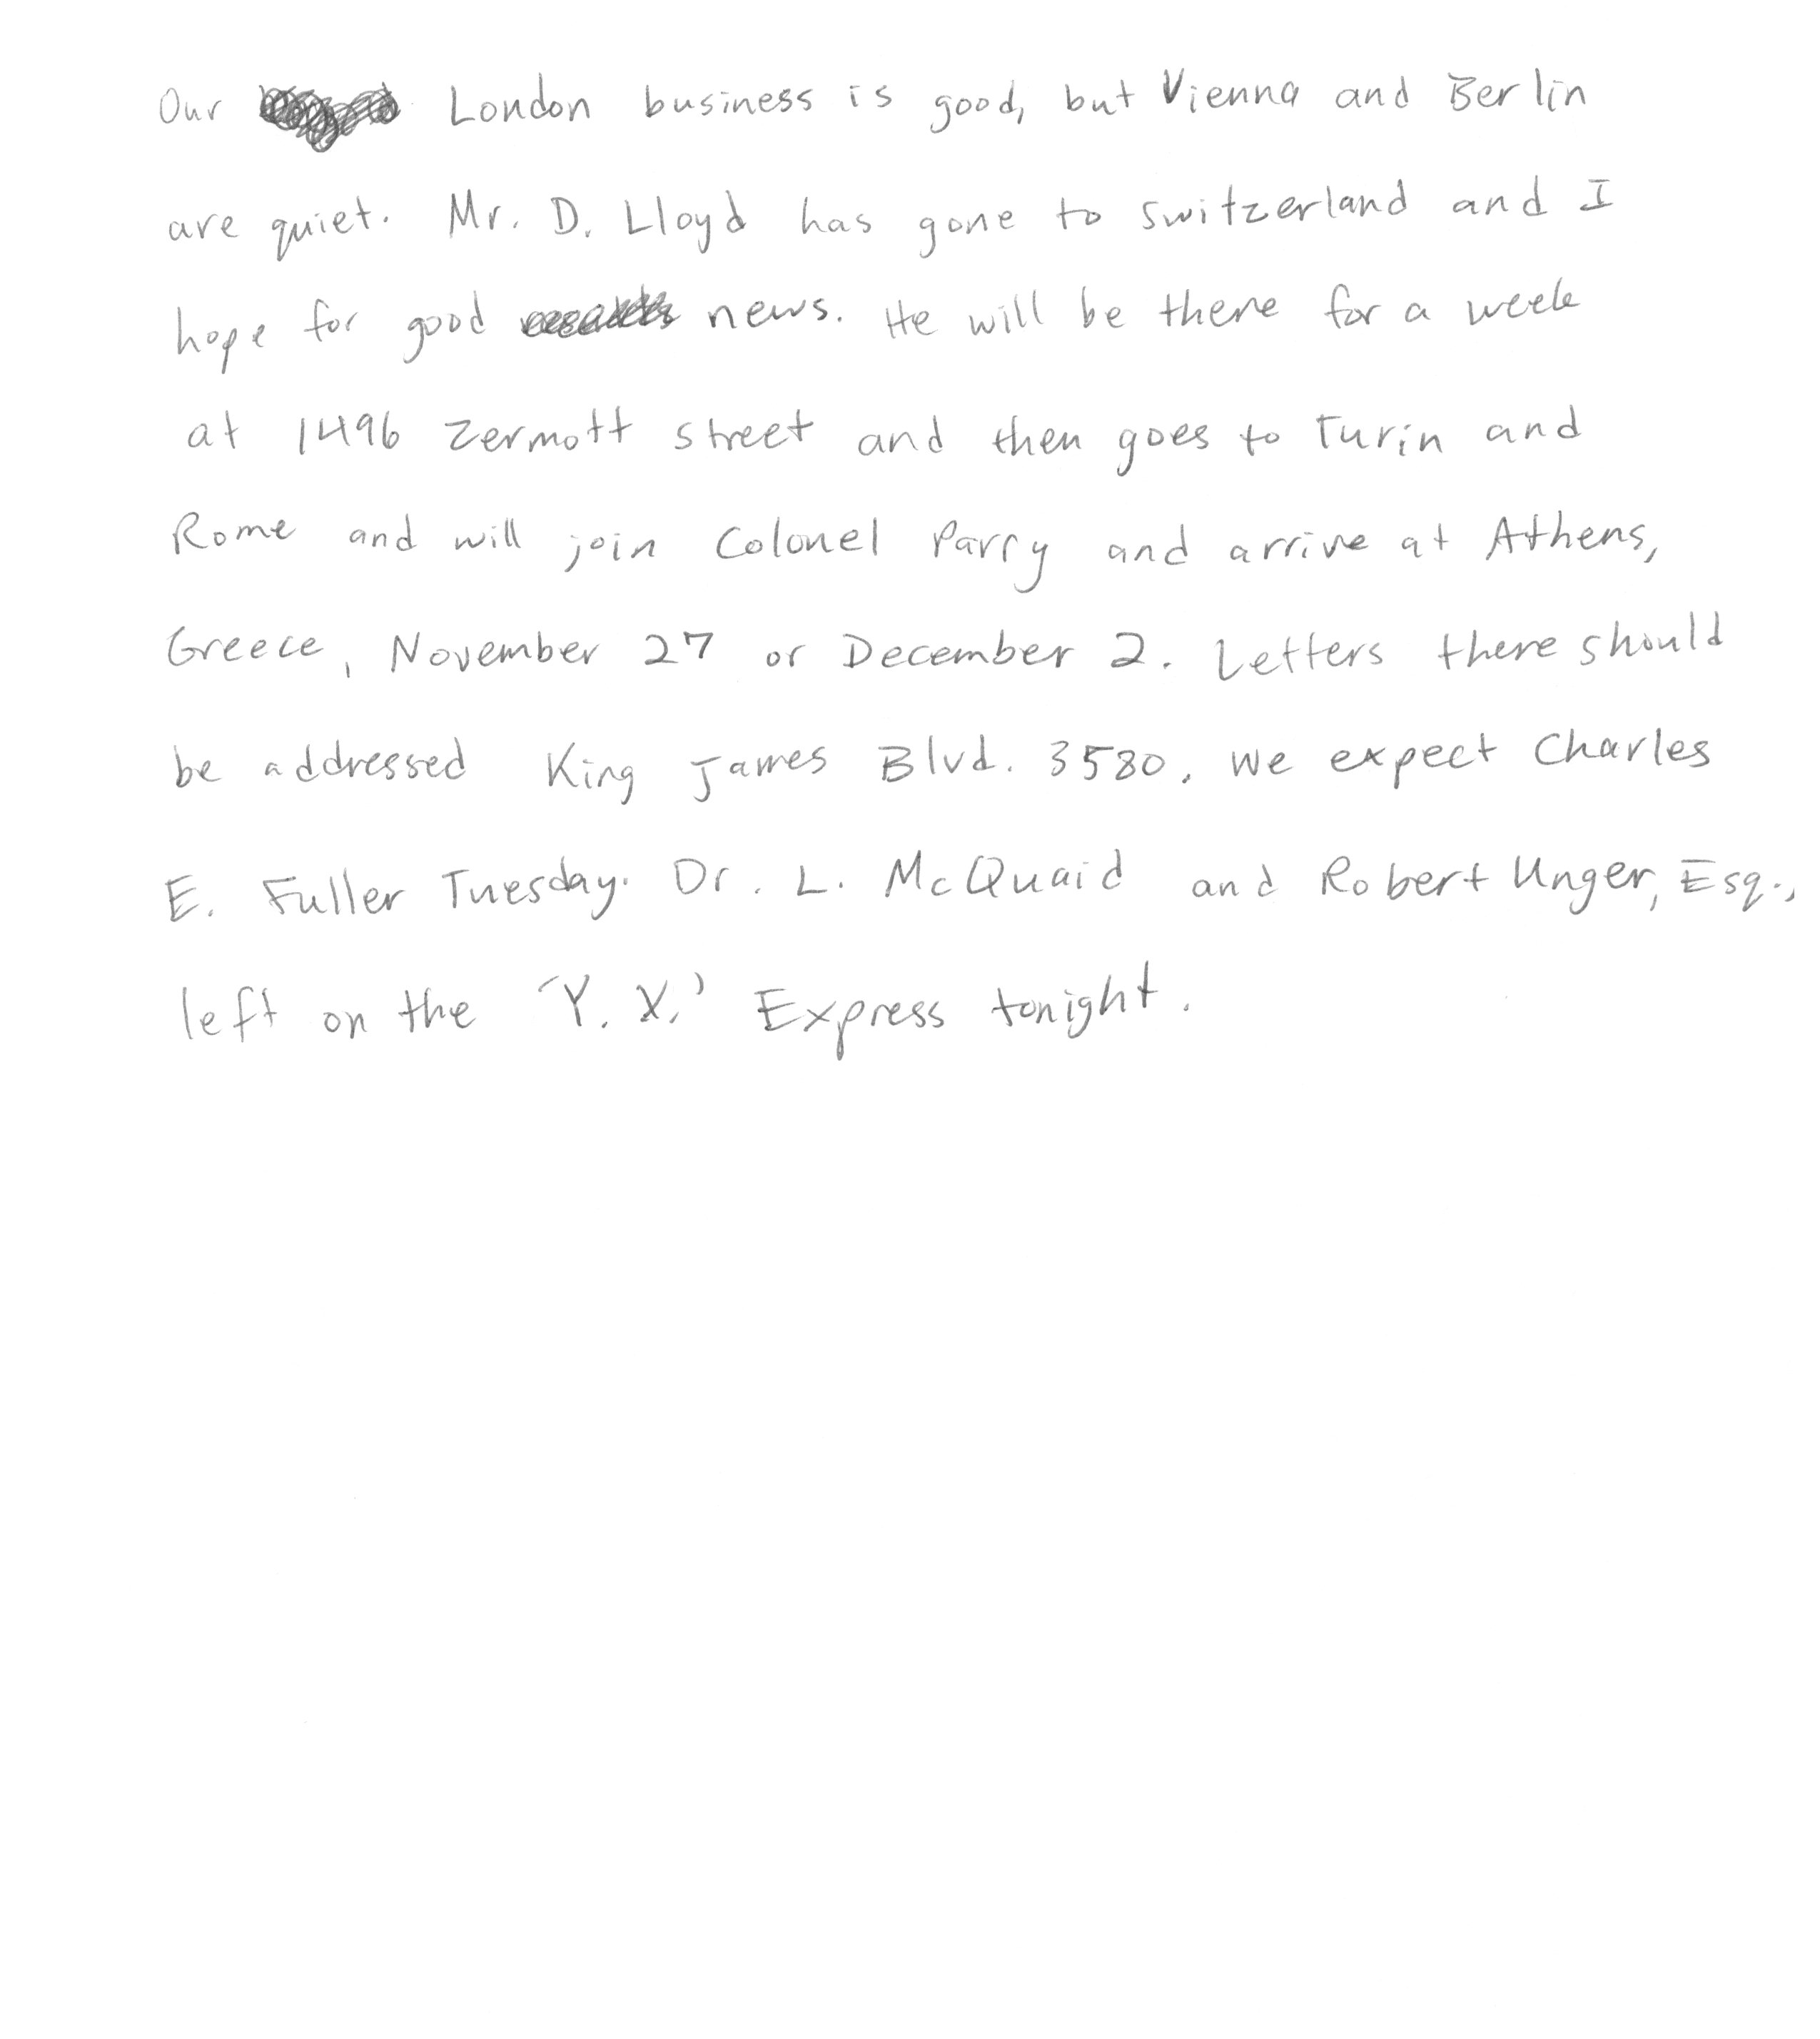 Our London business is good, but Vienna and Berlin
are quiet. Mr. D. Lloyd has gone to Switzerland and I
hope for good news. He will be there for a week
at 1496 Zermott street and then goes to Turin and
Rome and will join Colonel Parry and arrive at Athens,
Greece, November 27 or December 2. Letters there should
be addressed King James Blvd. 3580. We expect Charles
E. Fuller Tuesday. Dr. L. McQuaid and Robert Unger, Esq.,
left on the 'Y. X.' Express tonight.